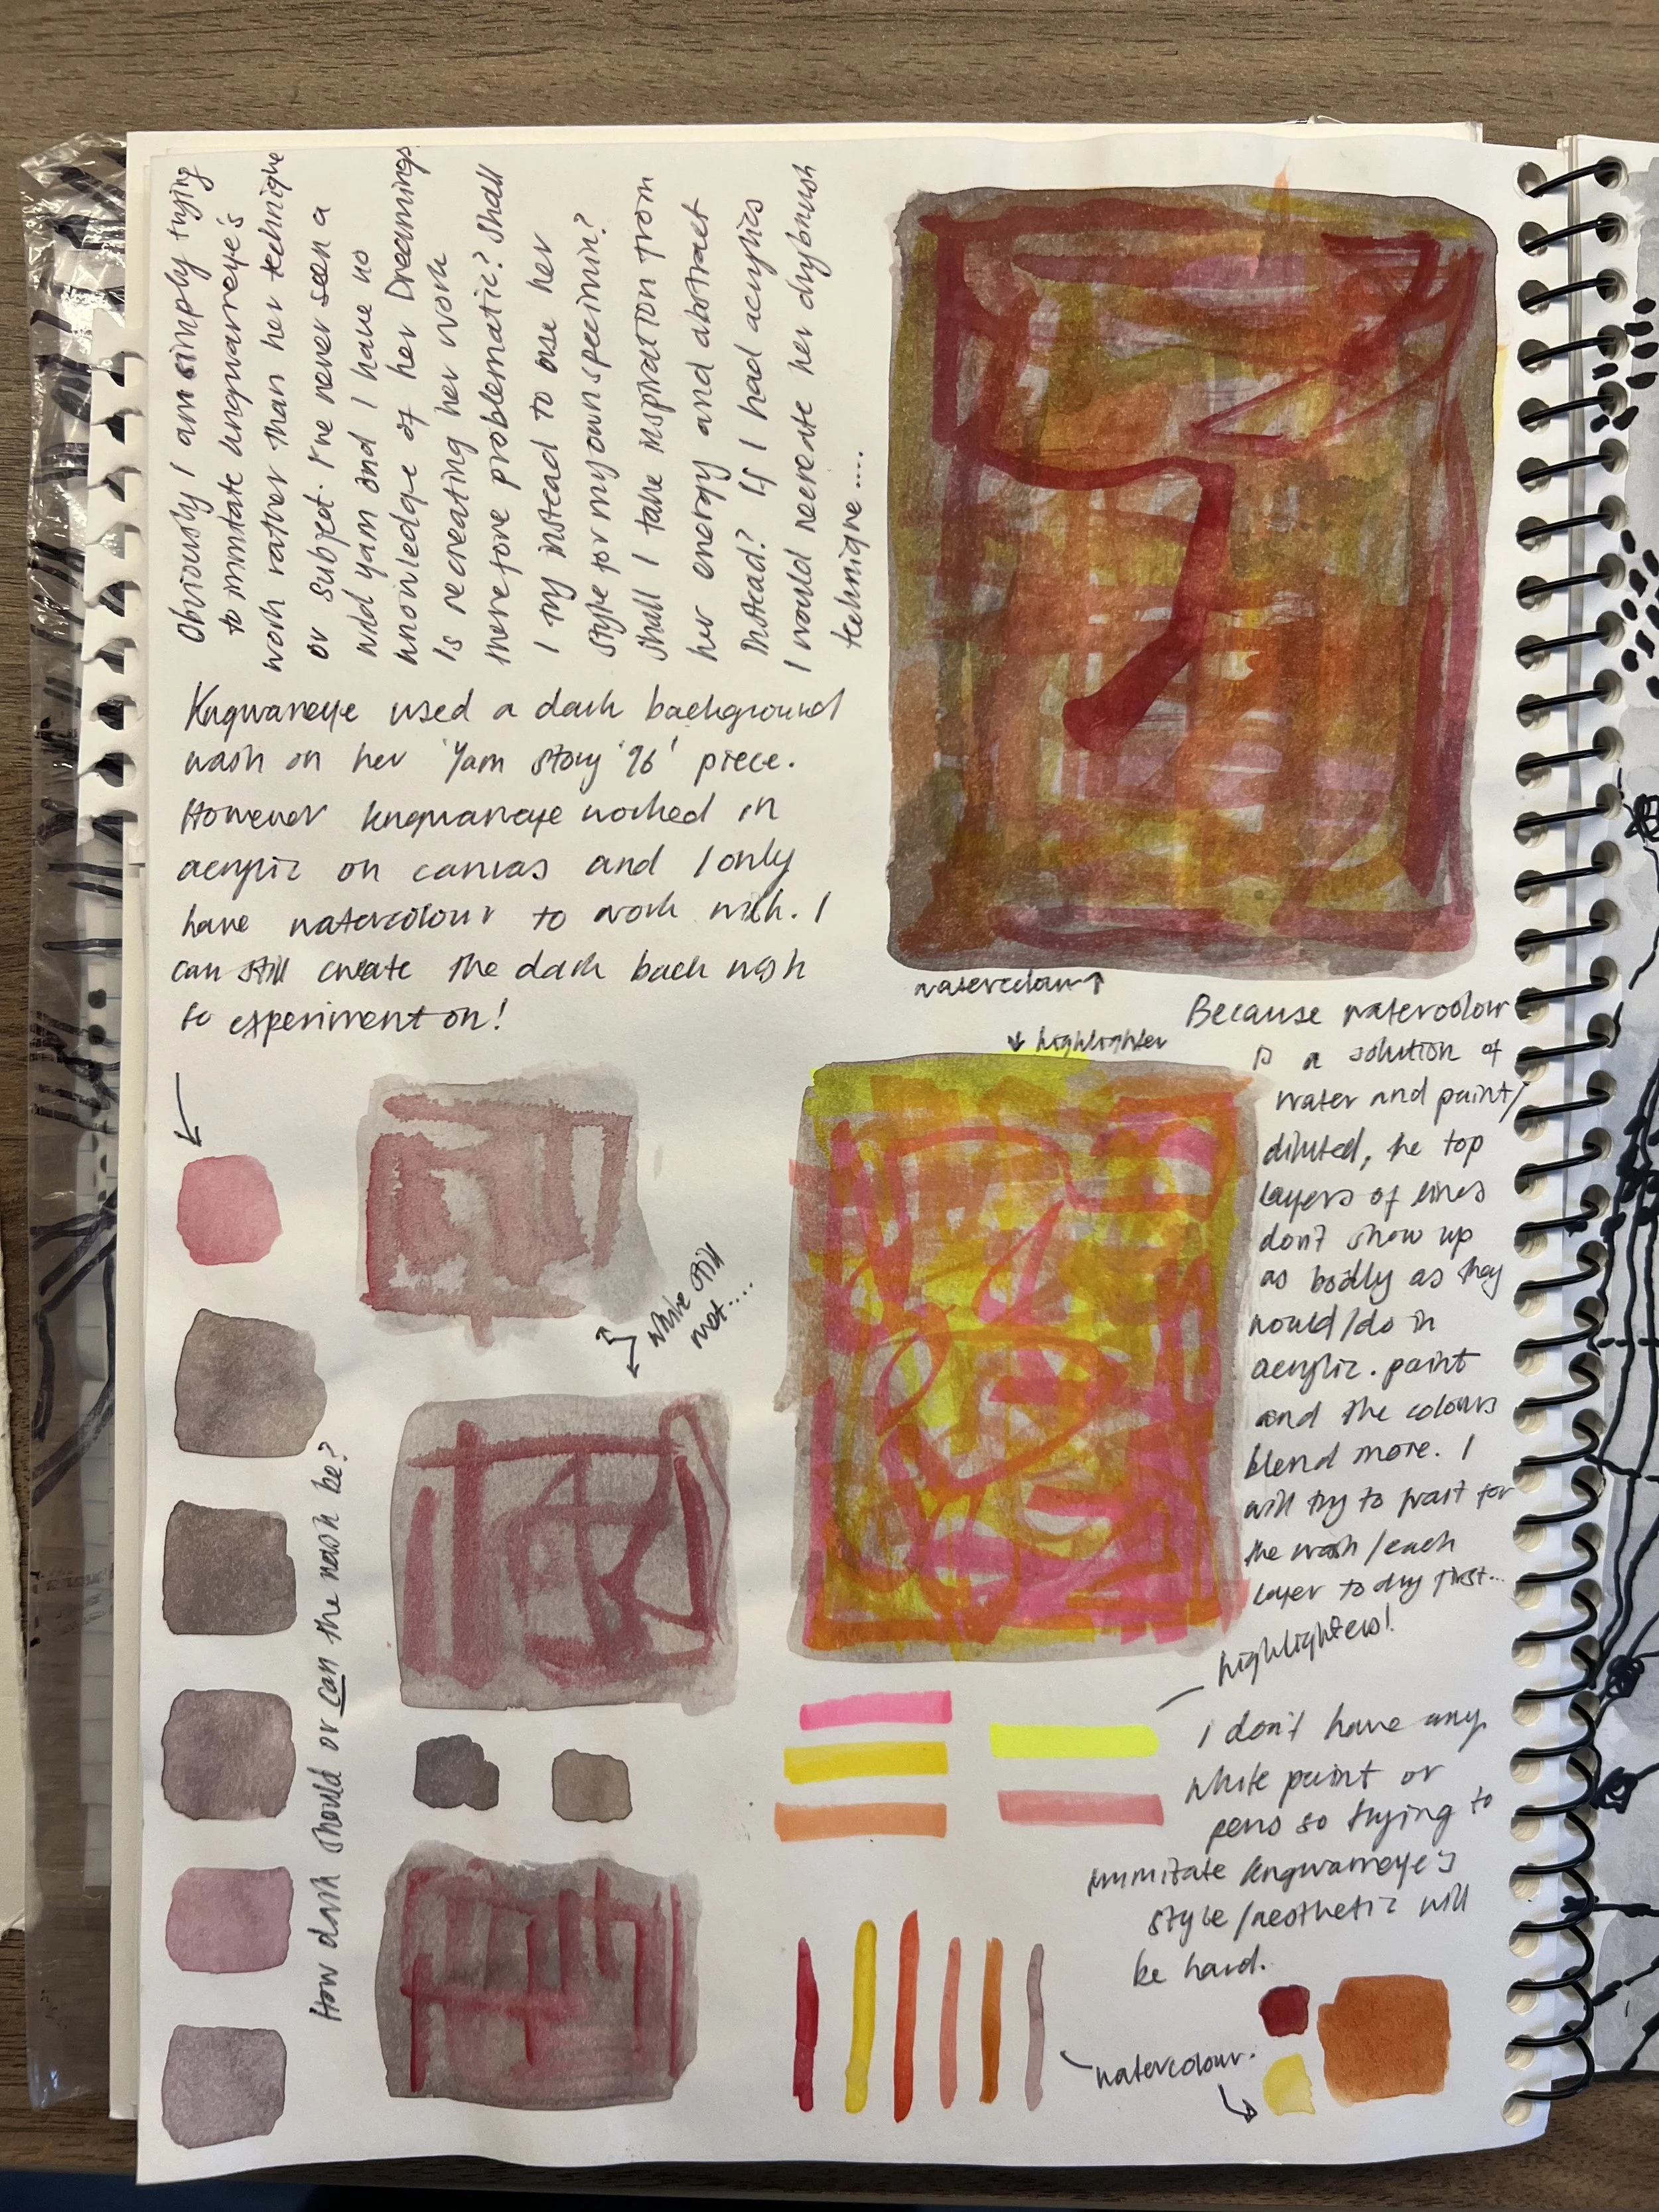 Obviously I am simply trying
to immitate Kngwarreye's
work rather than her technique
or subject. I've never seen a
wild yam and I have no
knowledge of her Dreamings
Is recreating her work
therefore problematic? Shall
I try instead to use her
style for my own specimin?
Shall I take inspiration from
her energy and abstract
instead? If I had acrylics
I would recreate her drybrush
technique....
Kngwarreye used a dark background
wash on her 'Yam story '96' piece.
However Kngwarreye worked in
acrylic on canvas and I only
have watercolour to work with. I
can still create the dark back wash
to experiment on!
watercolour↑
↓ highlighter
Because watercolour
is a solution of
water and paint/
diluted, the top
layers of lines
don't show up
as boldly as they
would/do in
acrylic. paint
and the colours
blend more. I
will try to wait for
the wash/each
layer to dry first...
while still
wet....
How dark should or can the wash be?
highlighters!
I don't have any
white paint or
pens so trying to
immitate Kngwarreye's
style/aesthetic will
be hard.
watercolour.